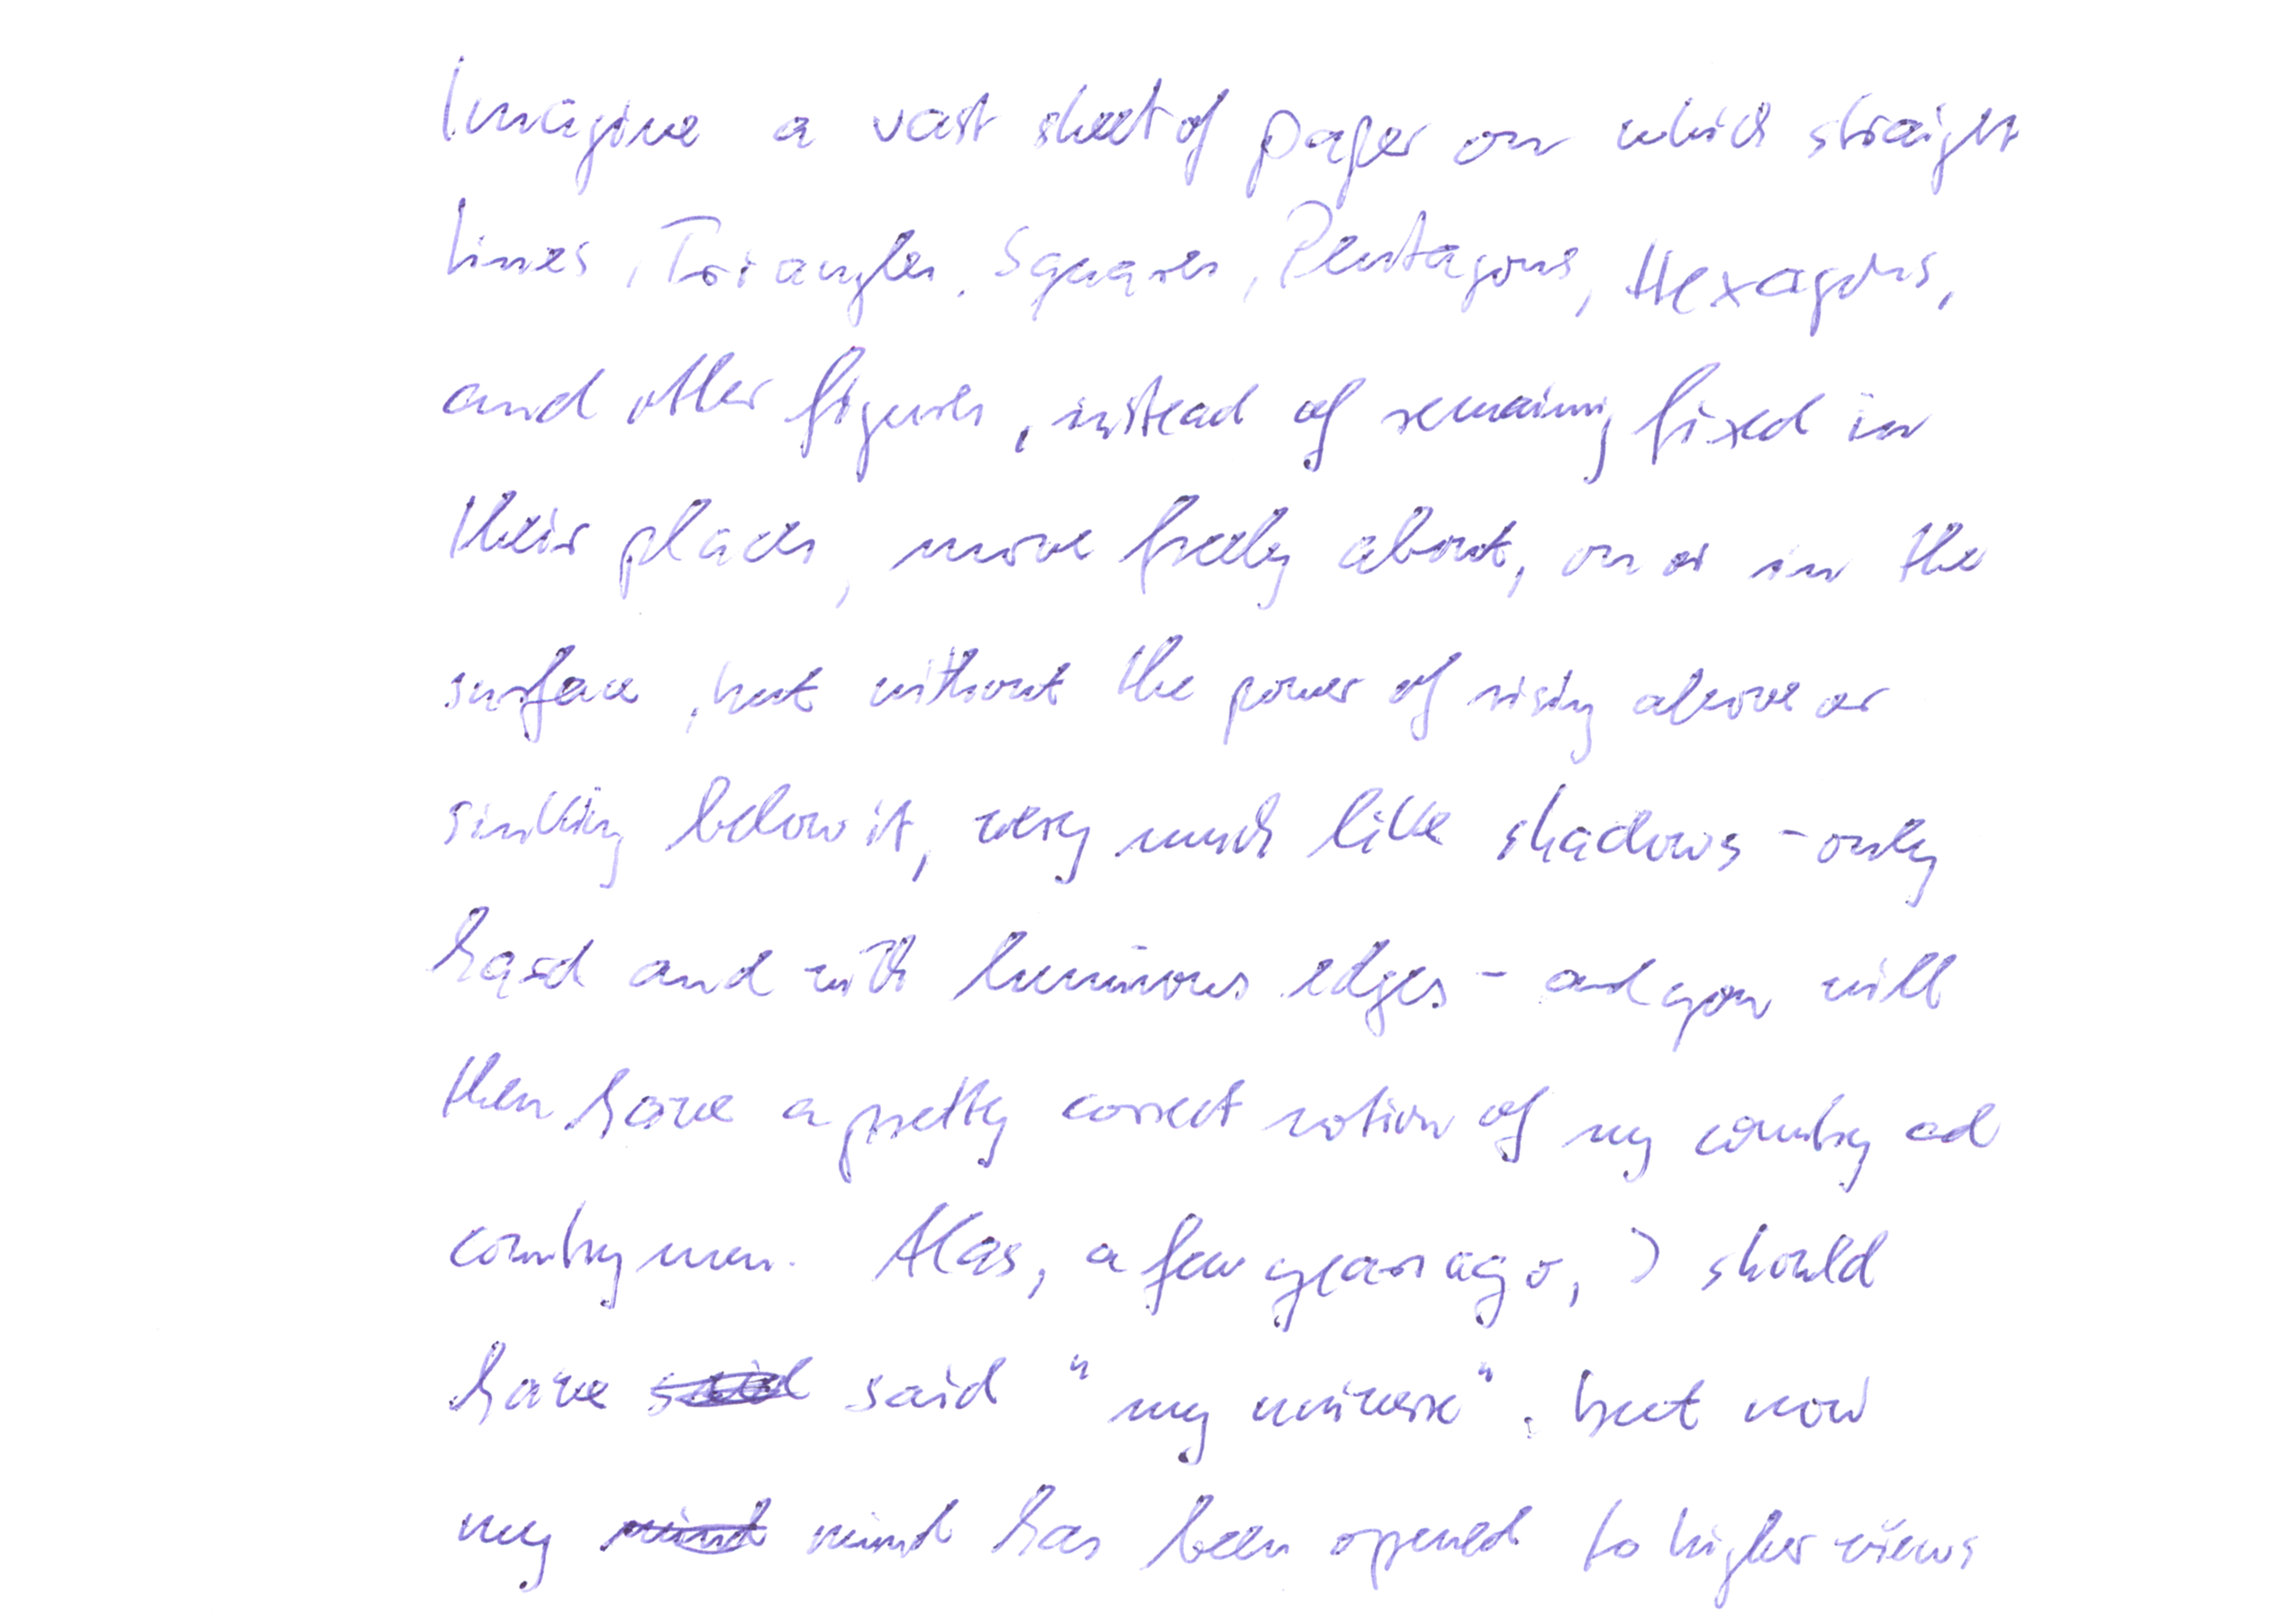 Imagine a vast sheet of paper on which straight
lines, Triangles, Squares, Pentagons, Hexagons,
and other figures, instead of remaining fixed in
their places, move freely about, on or in the
surface, but without the power of rising above or
sinking below it, very much like shadows - only
hard and with luminous edges - and you will
then have a pretty correct notion of my country and
countrymen. Alas, a few years ago, I should
have said said "my universe", but now
my mind mind has been opened to higher views